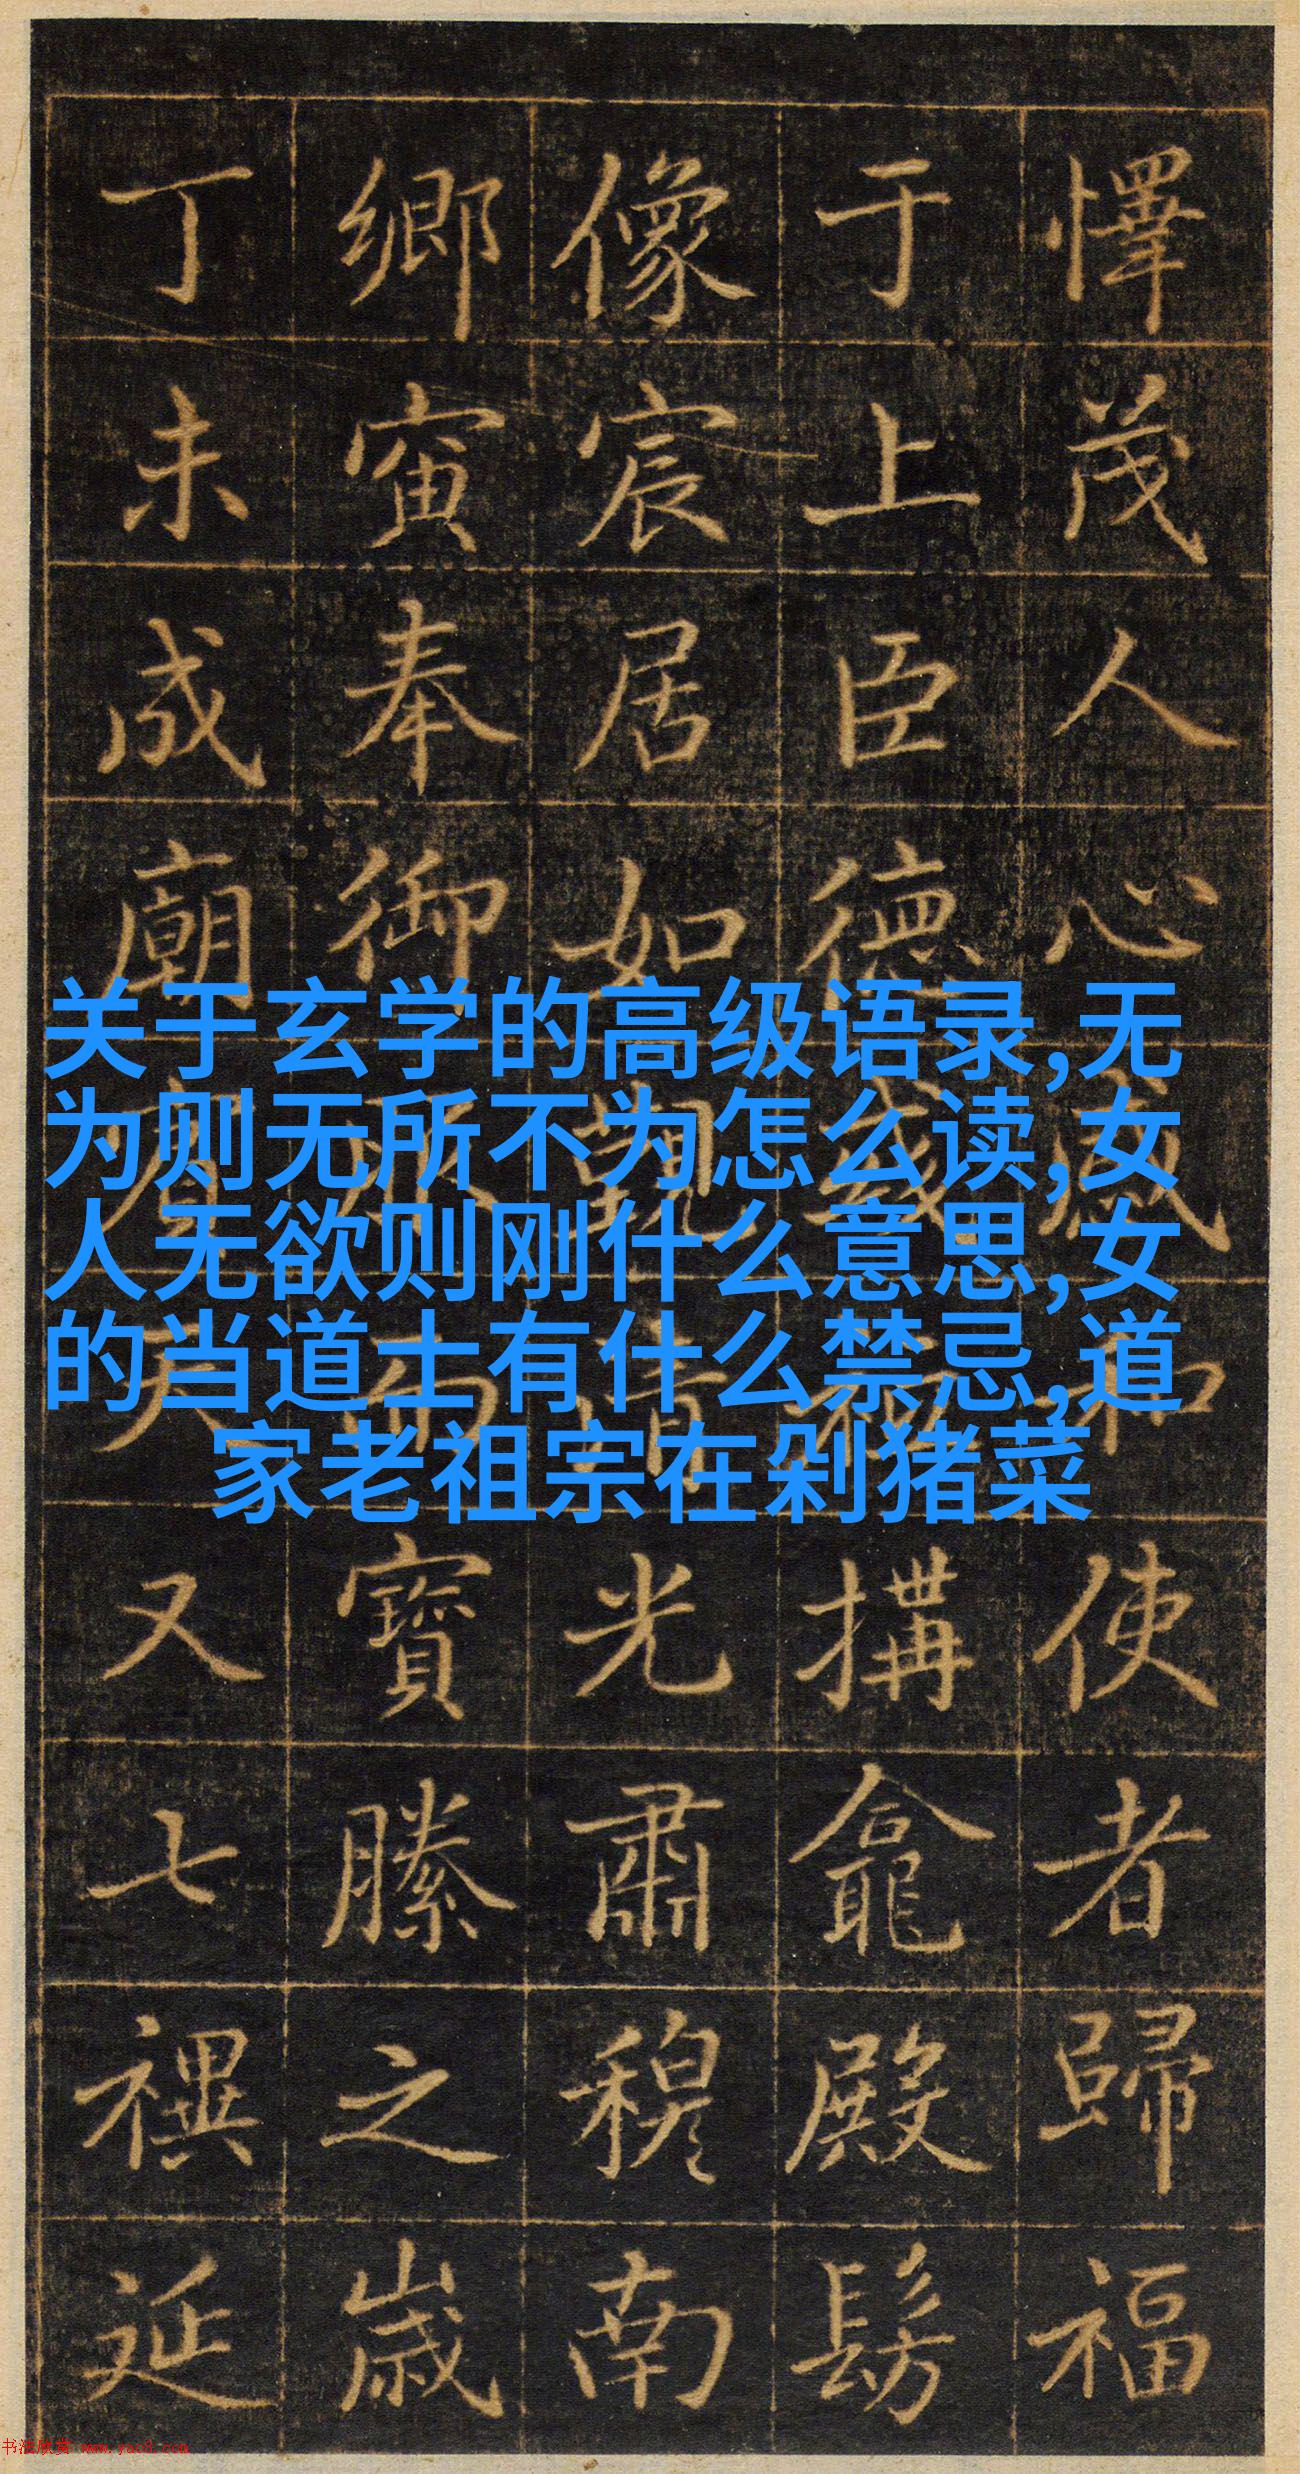 懌茂人心感和使者歸福
于上臣德搆龕殿髣
像宸居如觀清光肅穆南
鄉寅奉御寶縢之歲
丁未成廟又七禩延
关于玄学的高级语录,无
为则无所不为怎么读,女
人无欲则刚什么意思,女
的当道士有什么禁忌,道
家老祖宗在剁猪菜
书法欣赏 www.yac8.com